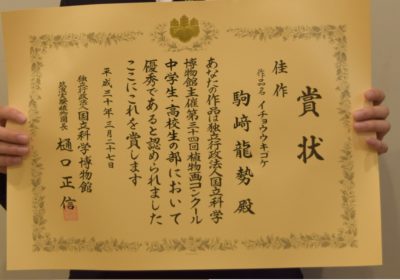 賞状
佳作
作品名 イチョウウキゴケ
駒﨑龍勢 殿
あなたの作品は独立行政法人国立科学
博物館主催第三十四回植物画コンクール
中学生・高校生の部において
優秀であると認められました
ここにこれを賞します
平成三十年三月二十七日
独立行政法人国立科学博物館
筑波実験植物園長
樋口正信